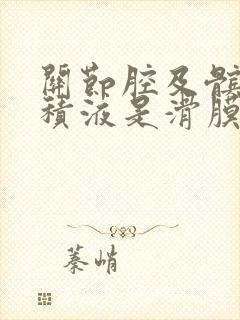 關節腔及髕
積液是滑膜
蓁峭